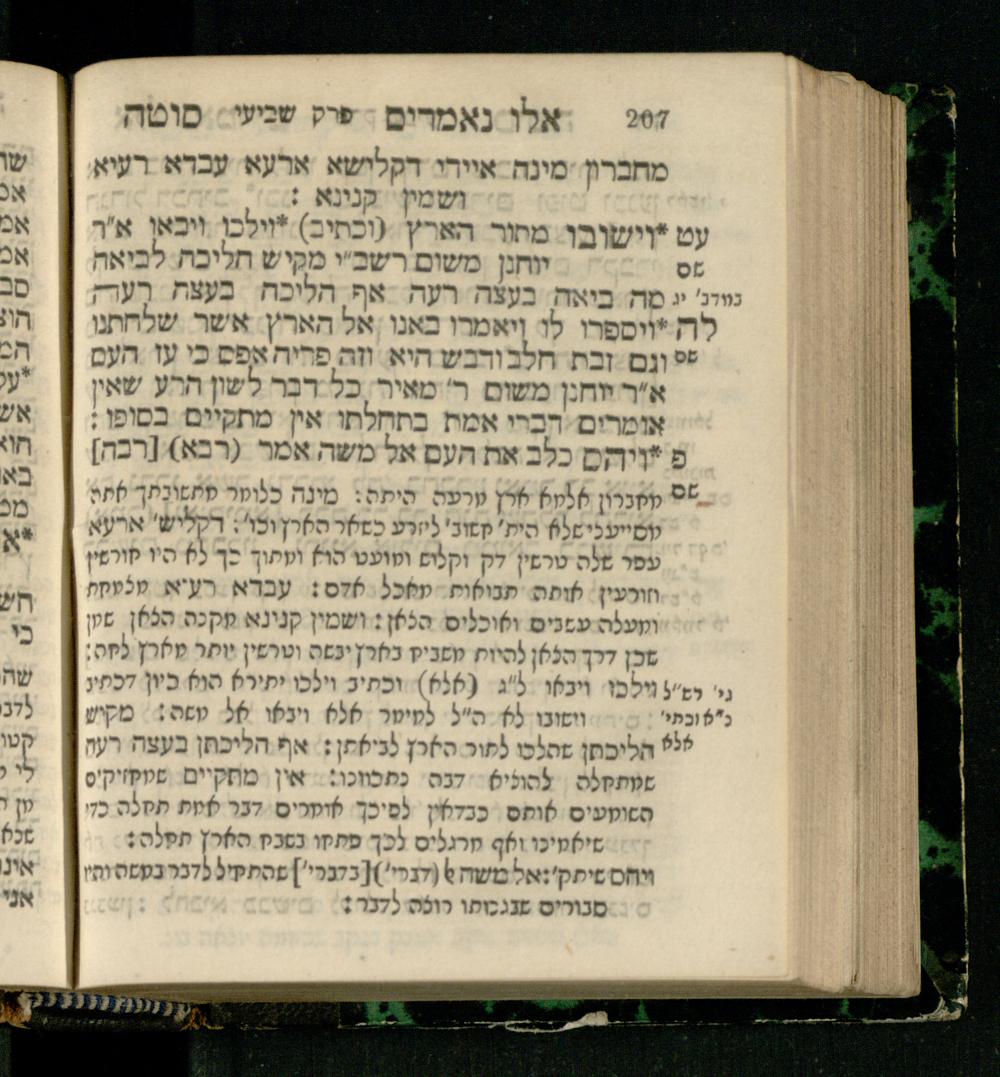 207 אלו נאמרים פרק שביעי סוטה
מחברון מינה איידי דקלישא ארעא עבדא רעיא
ושמין קנינא :
עט *וישובו מתור הארץ (וכתיב) *וילכו ויבאו א״ר
שם יוחנן משום רשב״י מקיש הליכה לביאה
במדב׳ יג מה ביאה בעצה רעה אף הליכה בעצה רעה
לה *ויספרו לו ויאמרו באנו אל הארץ אשר שלחתנו
שם וגם זבת חלב ודבש היא וזה פריה אפס כי עז העם
א״ר יוחנן משום ר׳ מאיר כל דבר לשון הרע שאין
אומרים דברי אמת בתחלתו אין מתקיים בסופו :
פ *ויהס כלב את העם אל משה אמר (רבא) [רבה]
שם מחברון אלמא ארץ מרעה היתה : מינה כלומר מתשובתך אתה
מסייעני שלא הית׳ חשוב׳ ליזרע כשאר הארץ וכו׳ : דקליש׳ ארעא
עפר שלה טרשין דק וקלוש ומועט הוא ומתוך כך לא היו חורשין
וזורעין אותה תבואות מאכל אדם : עבדא רע״א מלמחת
ומעלה עשבים ואוכלים הצאן : ושמין קנינא מקנה הצאן שמן
שכן דרך הצאן להיות משביח בארץ יבשה וטרשין יותר מארץ לחה :
גי׳ רש״ל וילכו ויבאו ל״ג (אלא) וכתיב וילכו יתירא הוא כיון דכתיב
כ״א וכתי׳ וישובו לא ה״ל למימר אלא ויבאו אל משה : מקיש
אלא הליכתן שהלכו לתור הארץ לביאתן : אף הליכתן בעצה רעה
שמתחלה להוציא דבה נתכוונו : אין מתקיים שמחזיקים
השומעים אותם כבדאין לפיכך אומרים דבר אמת תחלה כדי
שיאמינו ואף מרגלים לכך פתחו בשבח הארץ תחלה :
ויהס שיתק׳ : אל משה (דברי׳) [בדברי׳] שהתחיל לדבר במשה והיו
סבורים שבגנותו רוצה לדבר :